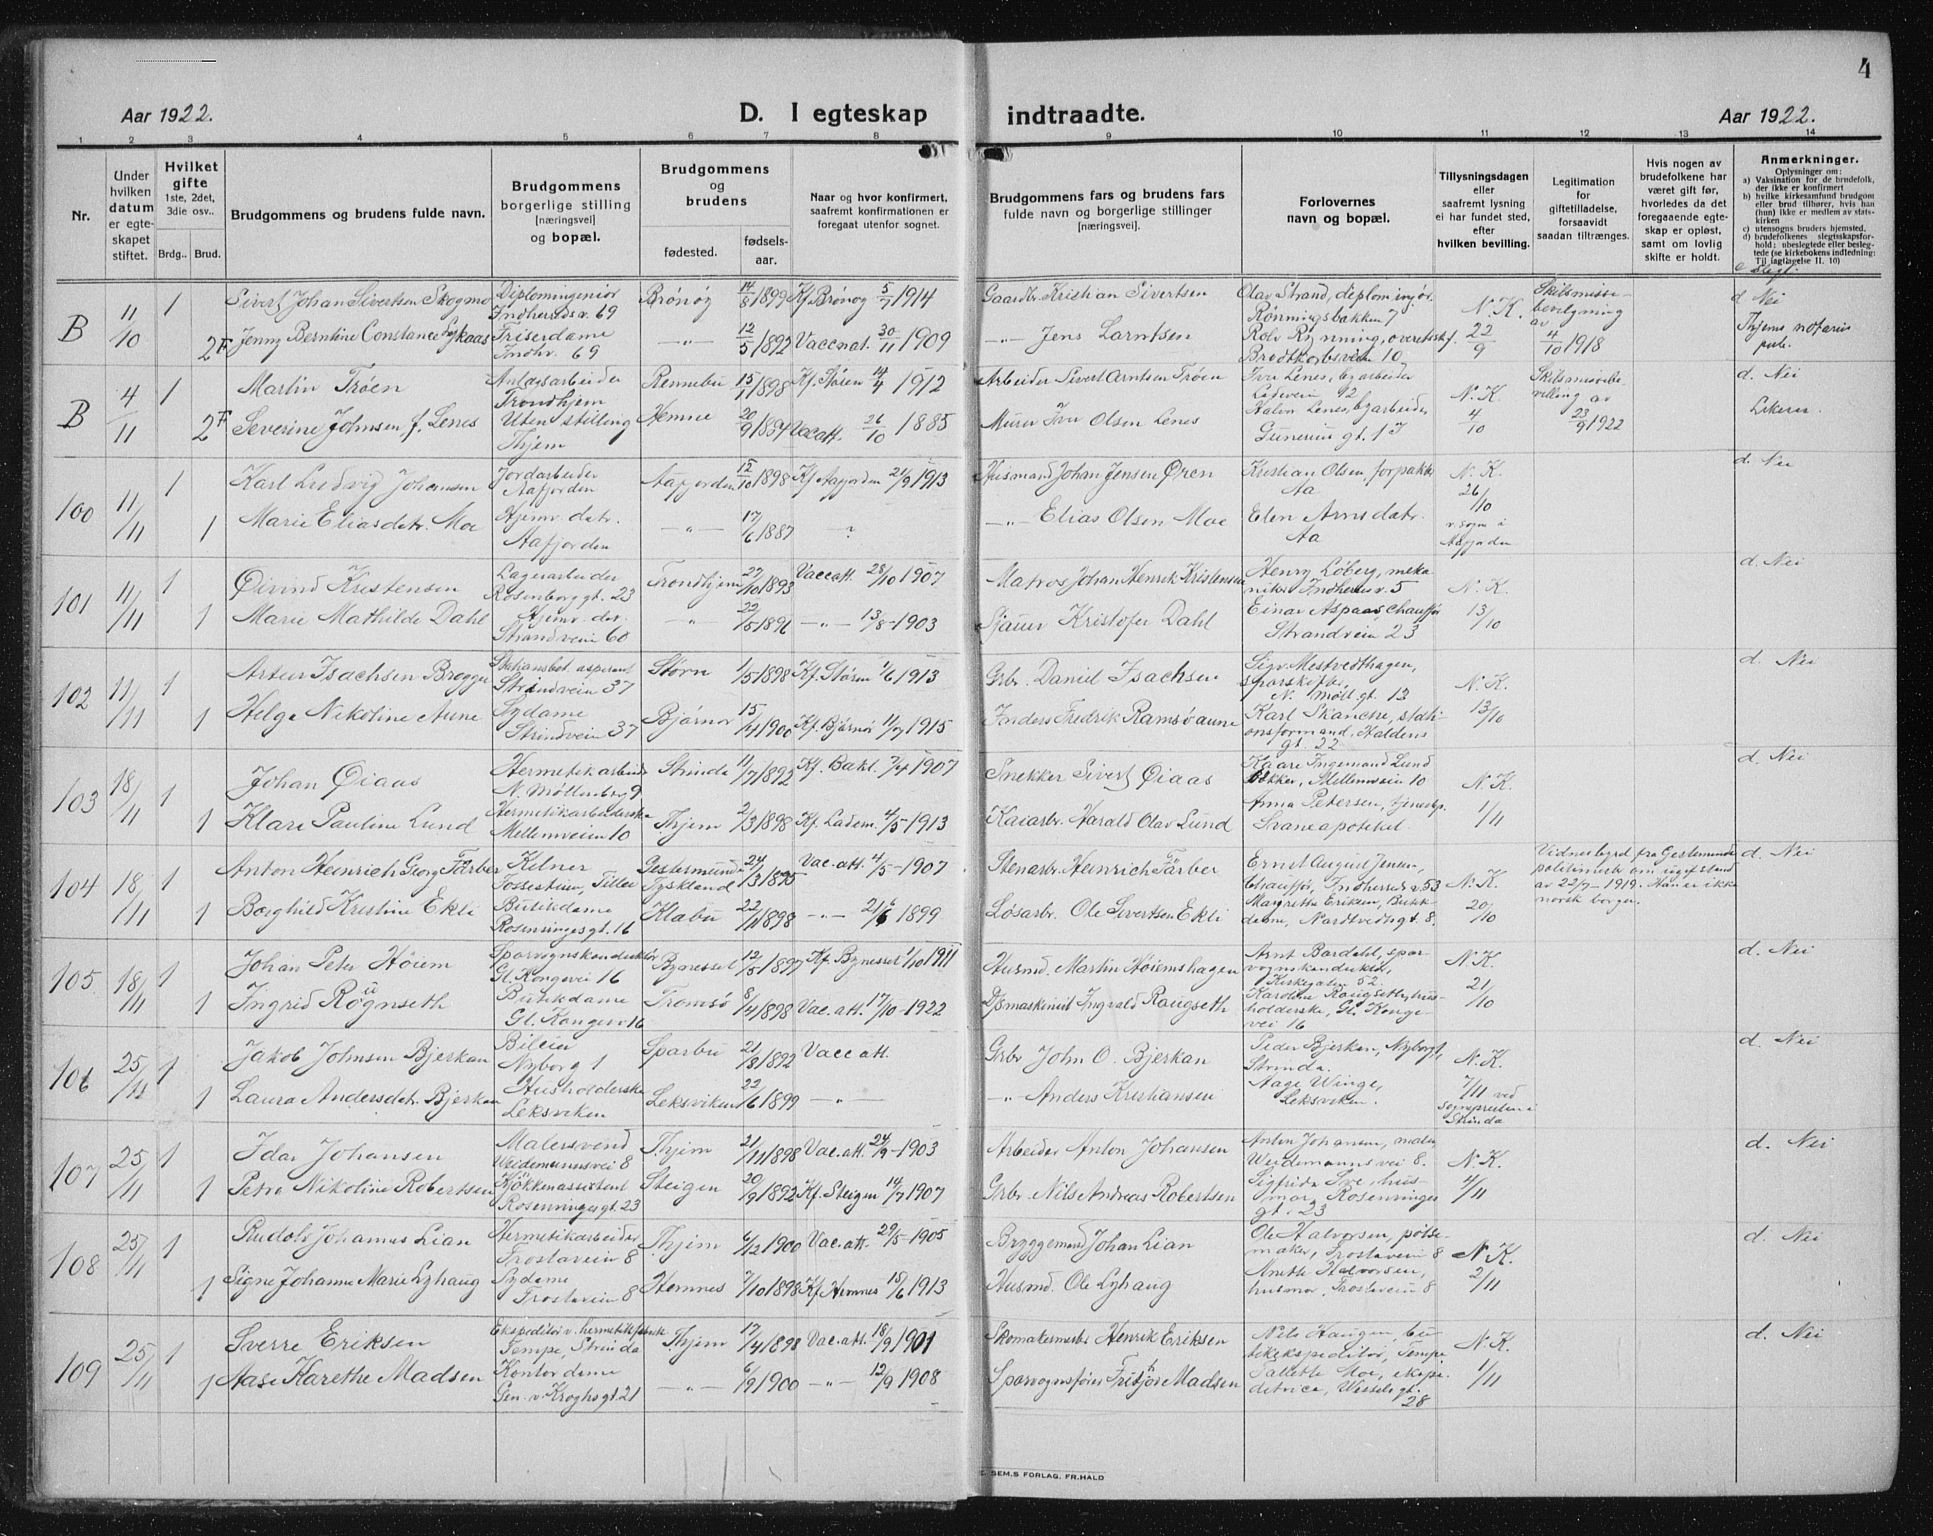 4
Aar 1922. D. I egteskap indtraadte. Aar 1922.
1 2 3 4 5 6 7 8 9 10 11 12 13 14
Nr.
Under hvilken datum er egteskapet stiftet.
Hvilket gifte 1ste, 2det, 3die osv..
Brdg.. Brud.
Brudgommens og brudens fulde navn.
Brudgommens borgerlige stilling [næringsvei] og bopæl.
Brudgommens og brudens
fødested. fødsels-aar.
Naar og hvor konfirmert, saafremt konfirmationen er foregaat utenfor sognet.
Brudgommens fars og brudens fars fulde navn og borgerlige stillinger [næringsvei].
Forlovernes navn og bopæl.
Tillysningsdagen eller saafremt lysning ei har fundet sted, efter hvilken bevilling.
Legitimation for giftetilladelse, forsaavidt saadan tiltrænges.
Hvis nogen av brudefolkene har været gift før, hvorledes da det foregaaende egteskap er opløst, samt om lovlig skifte er holdt.
Anmerkninger.
Oplysninger om:
a) Vaksination for de brudefolk, der ikke er konfirmert
b) hvilke kirkesamfund brudgom eller brud tilhører, hvis han (hun) ikke er medlem av statskirken
c) utensogns bruders hjemsted,
d) brudefolkenes slegtsskapsforhold; ubeslegtede eller beslegtede (se kirkebokens indledning: Til iagttagelse II. 10)
B 11/10 1 Sivert Johan Sivertsen Skogmo Diplomingeniør Indherredsv. 69 Brønøy 14/8 1899 Kf. Brønøy 5/7 1914 Gaardbr. Kristian Sivertsen Olav Strand, diplom.injør. Rönningsbakken 7 N. K. 22/9 Skilsmissebevilgning av 4/10 1918 d Nei
2 F Jenny Berntine Constance Frisørdame Indhr. 69 —"— 12/5 1892 Vaccnat. 30/11 1909 —"— Jens Larntsen Rolv Rynning, overetssf. Bredt 10 Thjems notarius pub.
B 4/11 1 Martin Trøen Anlægsarbeider Trondhjem Rennebu 15/ 1898 Kf. Støren 14/4 1912 Arbeider Sivert Arntsen Trøen Iver Lenes, byarbeider Ladeveien 92 N. K. 4/10 Skilsmissebevilling av 23/9 1922 d. Nei
2 F Severine Johnsen f. Lenes Uten stilling Thjem Hemne 20/9 Vacatt. 26/10 1885 Murer Iver Olsen Lenes Halvor Lenes, byarbeider, Gunerius gt. 1
100 11/11 1 Karl Ludvig Johansen Jordarbeider Aafjorden Aafjorden 12/10 1898 Kf. Aafjorden 21/9 1913 Husmand Johan Jensen Øren Kristian Olsen, forpakter Aa N. K. 26/10 v. sogn i Aafjorden d. Nei
1 Marie Eliasdatr. Moe Hjemv. datr. Aafjorden —"— 17/6 1887 ? —"— Elias Olsen Moe Elen Arnsdatr. Aa
101 11/11 1 Øivind Kristensen Lagerarbeider Rosenborg gt. 23 Trondhjem 27/10 1893 Vaccatt. 28/10 1907 Matros Johan Henrik Kristensen Henry Löberg, mekaniker Indherredsv. 5 N. K. 13/10 d. Nei
1 Marie Mathilde Dahl Hjemv. dtr. Strandveien 60 —"— 22/5 1896 —"— 13/8 1903 Sjauer Kristofer Dahl Einar Aspaas, chauffør Strandveien 23
102 11/11 1 Artur Isachsen Brøgger Stationsbet. aspirant Strindveien 37 Støren 1/5 1898 Kf. Støren 1/6 1913 Grbr. Daniel Isachsen Sigv. Mestvedthagen, sporskifter, N. Møll. gt. 13 N. K. 13/10 d. Nei
1 Helga Nikoline Aune Sydame Strindveien 37 Bjørnør 15/4 1900 Kf. Bjørnør 11/7 1915 Inders Fredrik Ramsøaune Karl Skancke, stationsformand, Haldens gt. 22
103 18/11 1 Johan Øiaas Hermetikarbeider N. Möllenberg 9 Strinda 11/7 1892 Kf. Bakl. 7/4 1907 Snekker Sivert Øiaas Kaare Ingemand Lund bøkker, Mellemveien 10 N. K. 1/11 d. Nei
1 Klara Pauline Lund Hermetikarbeiderske Mellemveien 10 Thjem 2/3 1898 Kf. Ladem. 4/5 1913 Kaiarbr. Harald Olav Lund Anna Petersen, tjenestep. Svaneapoteket
104 18/11 1 Anton Heinrich Georg Färber Kelner Fossestuen, Tiller Gestemünde Tyskland 24/3 1895 Vac. att. 4/5 1907 Stenarbr. Heinrich Färber Ernst August Jensen chauffør, Indherreds v. 53 N. K. 20/10 Vidnesbyrd fra Gestemünde politimesk om ugift stand av 22/7 1919. Han er ikke norsk borger. d. Nei
1 Borghild Kristine Ekli Butikdame Rosenvinges gt. 16 Klæbu 22/11 1898 —"— 21/6 1899 Løsarbr. Ole Sivertsen Ekli Margrethe Eriksen, Butikdame, Nardtvedts gt. 8.
105 18/11 1 Johan Peter Höiem Sporvognskonduktør Gl. Kongevei 16 Bynesset 12/5 1897 Kf. Bynesset 1/10 1911 Husmd. Martin Höiemshagen Arnt Bardahl, sporvognskonduktør, Kirkegaten 52. N. K. 21/10 d. Nei
1 Ingrid Røgnseth Butikdame Gl. Kongevei 16 Tromsø 8/4 1898 Vac. att. 17/10 1922 Dpmaskinist Ingvald Raugseth Karoline Raugseth, husholderske, Gl. Kongevei 16
106 25/11 1 Jakob Johnsen Bjerkan Bileier Nyborg 1 Sparbu 21/8 1892 Vacc att. Grbr John O. Bjerkan Peder Bjerkan, Nyborg 1, Strinda. N. K. 7/11 ved sognepresten i Strinda d. Nei
1 Laura Andersdatr. Bjerkan Husholderske Leksviken Leksviken 22/6 1899 —"— —"— Anders Kristiansen Aage Winge, Leksviken.
107 25/11 1 Idar Johansen Malersvend Weidemannsvei 8 Thjem 21/11 1898 Vac. att. 24/9 1903 Arbeider Anton Johansen Anton Johansen, maler, Weidemannsvei 8. N. K. 4/11 d. Nei
1 Petra Nikoline Robertsen Kjökkenassistent Rosenvinges gt. 23 Steigen 20/9 1892 Kf. Steigen 14/7 1907 Grbr. Nils Andreas Robertsen Sigfrida Sve, husmor, Rosenvinges gt. 23
108 25/11 1 Rudolf Johannes Lian Hermetikarbeider Frostaveien 8 Thjem 6/12 1900 Vac. att. 29/5 1905 Bryggemand Johan Lian Ole Halvorsen, pølsemaker, Frostaveien 8 N. K. 2/11 d. Nei
1 Signe Johanne Marie Lyhaug Sydame Frostaveien 8 Hemnes 7/10 1898 Kf. Hemnes 15/6 1913 Husmd. Ole Lyhaug Anette Halvorsen, husmor, Frostaveien 8
109 25/11 1 Sverre Eriksen Ekspeditør v. hermetikfabrik Tempe, Strinda Thjem 17/4 1898 Vac. att. 18/9 1901 Skomakermestr Henrik Eriksen Nils Haugen, butikekspeditør, Tempe N. K. 1/11 d. Nei
1 Aase Karethe Madsen Kontordame Gen. v. Kroghs gt. 21 —"— 6/9 1900 —"— 12/9 1908 Sporvognsfører Fritjof Madsen Tallette Moe, ekspeditrice, Wessels gt. 28
E. SEM.S FORLAG, FR.HALD